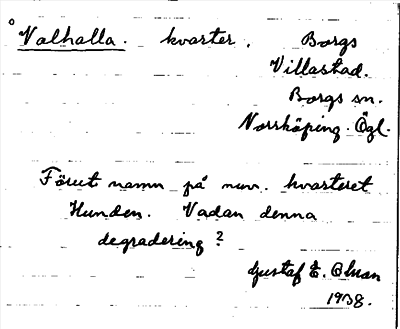 ° Valhalla. kvarter. Borgs
Villastad.
Borgs sn.
Norrköping. Ögl.
Förut namn på nuv. kvarteret
Hunden. Vadan denna
degradering?
Gustaf E. Olsson
1938.